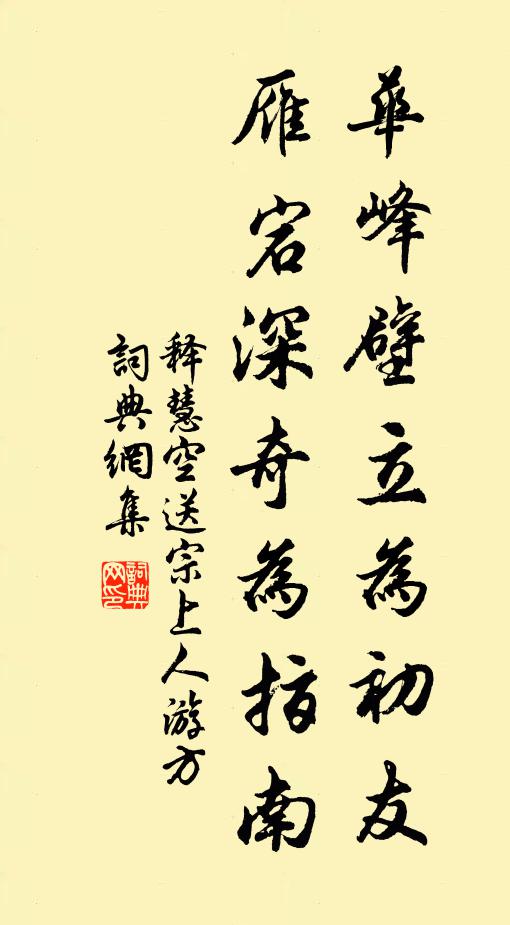 華峰壁立為初友
雁宕深奇為指南
释慧空送宗上人游方
詞典網集
詞典網印